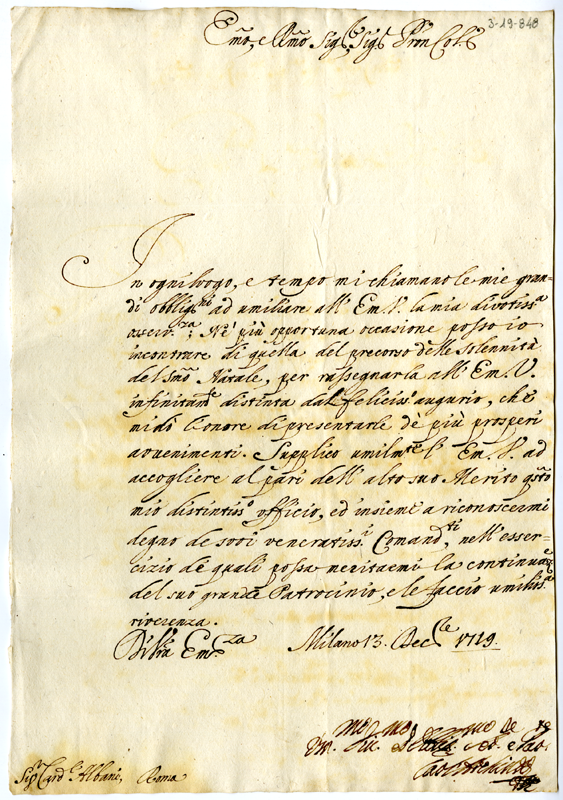 3-19-848
Emo, e Rmo Sigr, Sigr Pron Colmo
In ogni luogo, e tempo mi chiamano le mie gran=
di obbligni ad umiliare all' Em. V. la mia divotissa
osserza; Nè più opportuna occasione posso io
incontrare di quella del precorso delle Solennità
del Smo Natale, per rassegnarla all' Em. V.
infinitamte distinta dal felicisso augurio, che
mi dò l'onore di presentarle de più prosperi
avvenimenti. Supplico umilmte l' Em. V. ad
accogliere al pari dell' alto suo Merito qsto
mio distintisso officio, ed insieme a riconoscermi
degno de suoi veneratissi Comandti, nell' eser=
cizio de quali possa meritarmi la continuazne
del suo grande Patrocinio, e le faccio umilissa
riverenza.
Di Vra Emza Milano 13. Decbre 1719.
Sigr Cardle Albani, Roma